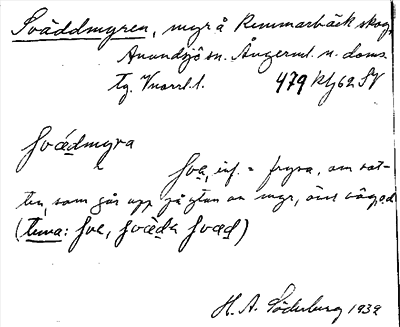 Sväddmyren, myr å Remmarbäck skog,
Anundsjö sn. Ångerml. n. doms.
tg. Vnorrl. l. 479 klj 62 SV
svædmyra
sve, inf. = frysa, om vat-
ten, som går upp på ytan av myr, även vägar
(tema: sve, svæda svæd)
H. A. Söderberg 1939